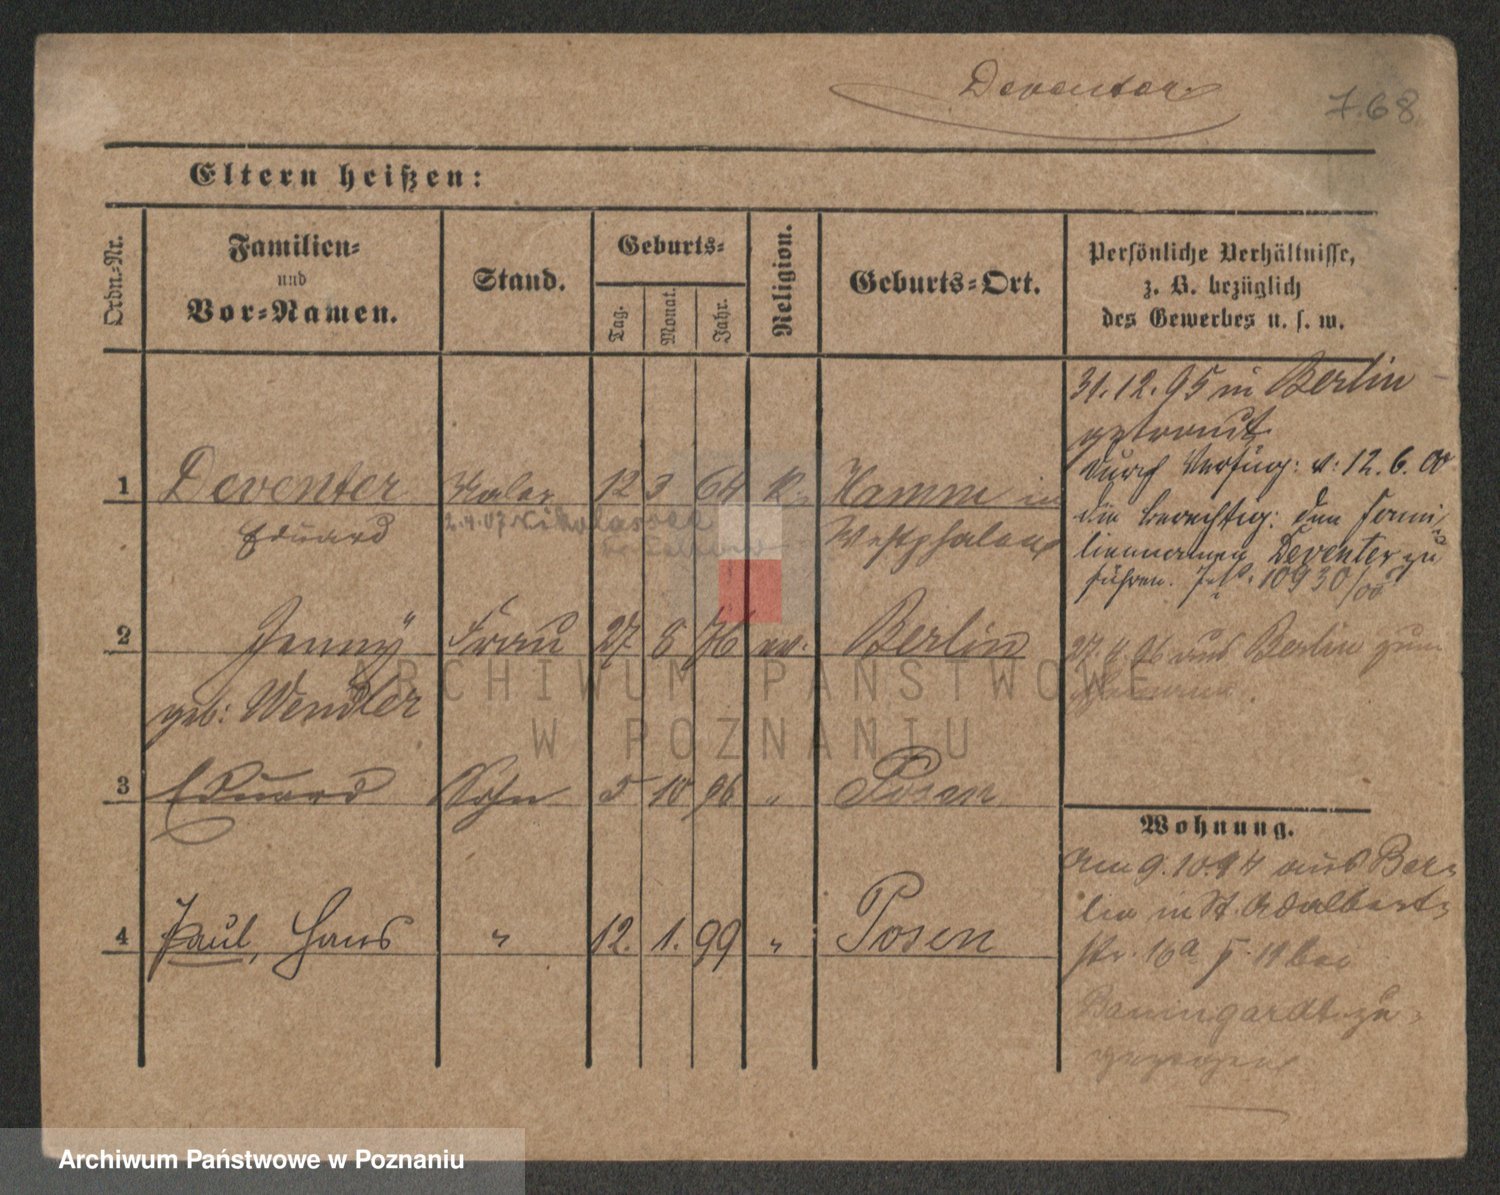 Deventer.
7.68
Eltern heißen:
Ordn.-Nr.
Familien-
und
Vor-Namen.
Stand.
Geburts-
Tag.
Monat.
Jahr.
Religion.
Geburts-Ort.
Persönliche Verhältnisse,
z. B. bezüglich
des Gewerbes u. s. w.
31.12.95 in Berlin
getraut
durch Verfüg: v: 12.6.00
die berechtig: den Fami-
liennamen Deventer zu
führen. 10930/00
1 Deventer Maler 12 3 64 k. Hamm in
Eduard
2.4.07 Nikolassee
Westphalen
2 Jenny Frau 27. 8 76 ev. Berlin
geb: Wendler
27. 4. 96 aus Berlin zum
3 Eduard Sohn 5 10 96 " Posen
4 Paul, Hans " 12. 1. 99 " Posen
Wohnung.
Am 9.10.94 aus Ber-
lin in St. Adalbert-
str. 16a I. 11 bei
Baumgardt zu-
gezogen
ARCHIWUM PAŃSTWOWE
W POZNANIU
Archiwum Państwowe w Poznaniu